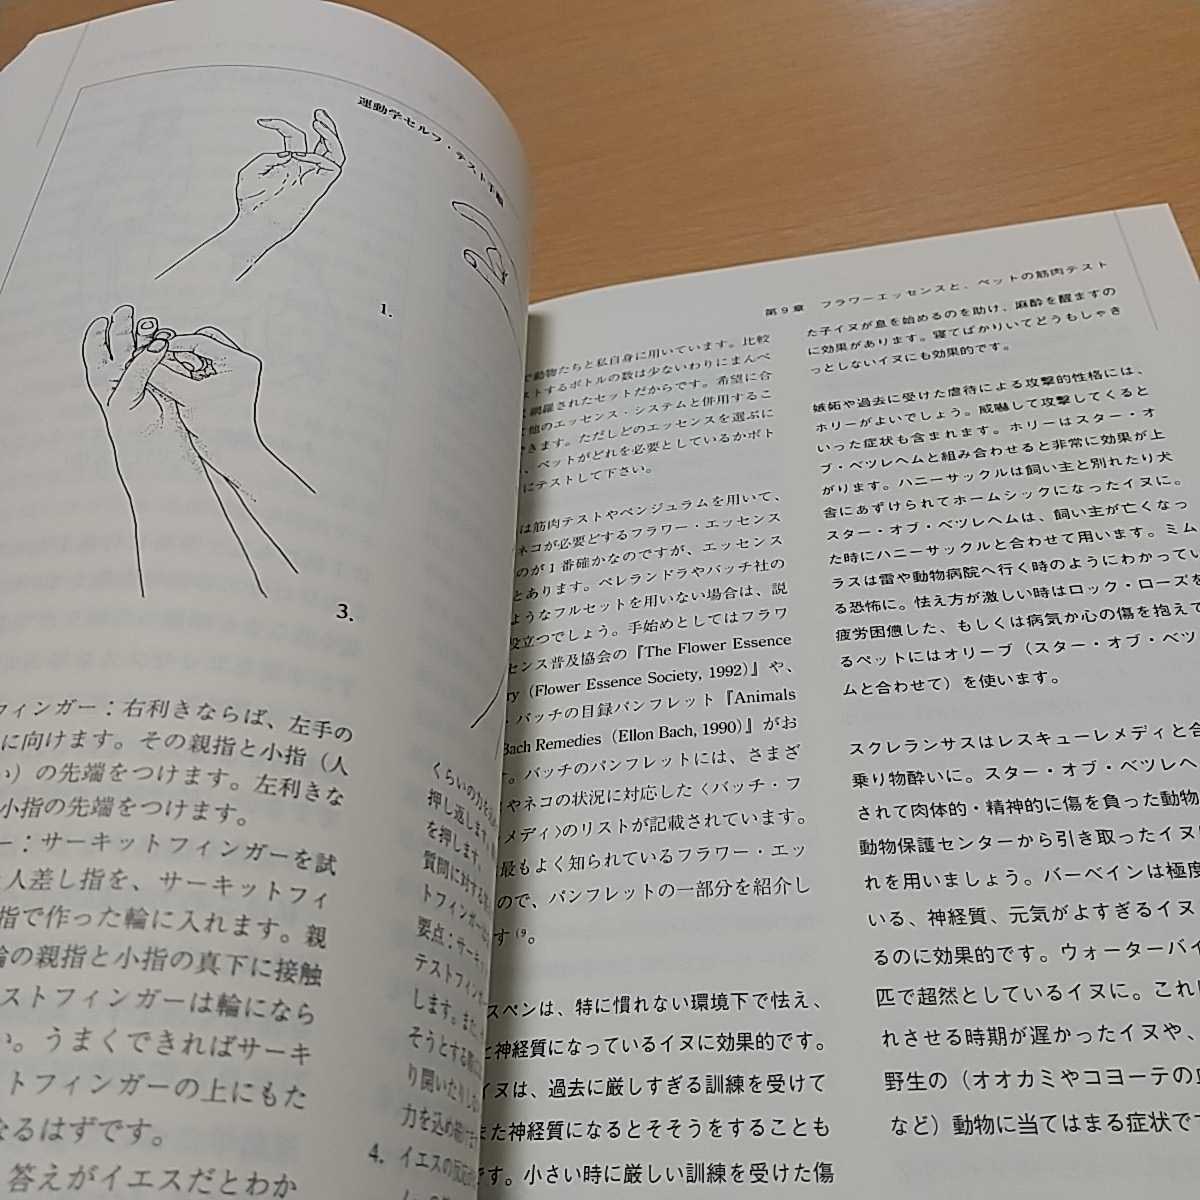 運動学セルフ・テスト手順
1.
3.
フィンガー：右利きならば、左手の
に向けます。その親指と小指（人
）の先端をつけます。左利きな
小指の先端をつけます。
ー：サーキットフィンガーを試
人差し指を、サーキットフィ
指で作った輪に入れます。親
輪の親指と小指の真下に接触
ストフィンガーは輪になら
い。うまくできればサーキ
ットフィンガーの上にもた
なるはずです。
答えがイエスだとわか
くらいの力を
押し返します。
を押します。
質問に対する
トフィンガー
要点：サーキ
テストフィンガー
します。また、
そうとする
り開いたりし
力を込め
4. イエスの反応
第９章 フラワーエッセンスと、ペットの筋肉テスト
で動物たちと私自身に用いています。比較
ストするボトルの数は少ないわりにまんべ
網羅されたセットだからです。希望に合
他のエッセンス・システムと併用するこ
できます。ただしどのエッセンスを選ぶに
、ペットがどれを必要としているかボト
にテストして下さい。
は筋肉テストやペンジュラムを用いて、
ネコが必要どするフラワー・エッセンス
のが１番確かなのですが、エッセンス
とあります。ペレランドラやバッチ社の
ようなフルセットを用いない場合は、説
役立つでしょう。手始めとしてはフラワ
センス普及協会の『The Flower Essence
ry（Flower Essence Society, 1992）』や、
・バッチの目録パンフレット『Animals
Bach Remedies（Ellon Bach, 1990）』がお
す。バッチのパンフレットには、さまざ
やネコの状況に対応した〈バッチ・フ
メディ〉のリストが記載されています。
最もよく知られているフラワー・エッ
ので、パンフレットの一部分を紹介し
す⁽⁹。
スペンは、特に慣れない環境下で怯え、
と神経質になっているイヌに効果的です。
イヌは、過去に厳しすぎる訓練を受けて
また神経質になるとそそうをすることも
です。小さい時に厳しい訓練を受けた傷
た子イヌが息を始めるのを助け、麻酔を醒ますの
に効果があります。寝てばかりいてどうもしゃき
っとしないイヌにも効果的です。
嫉妬や過去に受けた虐待による攻撃的性格には、
ホリーがよいでしょう。威嚇して攻撃してくると
いった症状も含まれます。ホリーはスター・オ
ブ・ベツレヘムと組み合わせると非常に効果が上
がります。ハニーサックルは飼い主と別れたり犬
舎にあずけられてホームシックになったイヌに。
スター・オブ・ベツレヘムは、飼い主が亡くなっ
た時にハニーサックルと合わせて用います。ミム
ラスは雷や動物病院へ行く時のようにわかってい
る恐怖に。怯え方が激しい時はロック・ローズを
疲労困憊した、もしくは病気か心の傷を抱えて
るペットにはオリーブ（スター・オブ・ベツ
ムと合わせて）を使います。
スクレランサスはレスキューレメディと合
乗り物酔いに。スター・オブ・ベツレヘ
されて肉体的・精神的に傷を負った動物
動物保護センターから引き取ったイヌ
れを用いましょう。バーベインは極度
いる、神経質、元気がよすぎるイヌ
るのに効果的です。ウォーターバイ
匹で超然としているイヌに。これ
れさせる時期が遅かったイヌや、
野生の（オオカミやコヨーテの
など）動物に当てはまる症状で